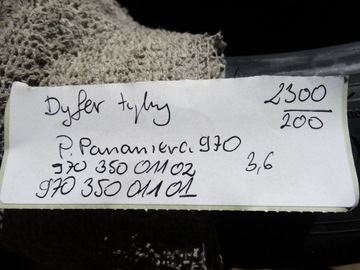 Dyfer tylny 2300
200
P. Panamera 970
970 350 011 02 3,6
970 350 011 01